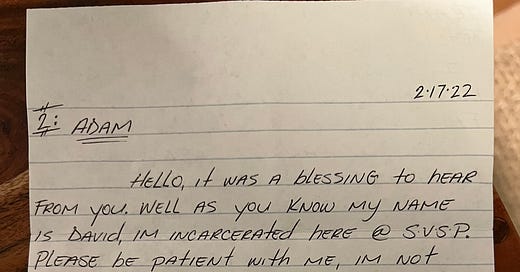 2·17·22
#2: ADAM
HELLO, it WAS A BLESSING to HEAR
FROM YOU. WELL AS YOU KNOW MY NAME
IS DAVID, IM INCARCERATED HERE @ S.V.S.P.
PLEASE BE PATIENT WITH ME, IM NOT